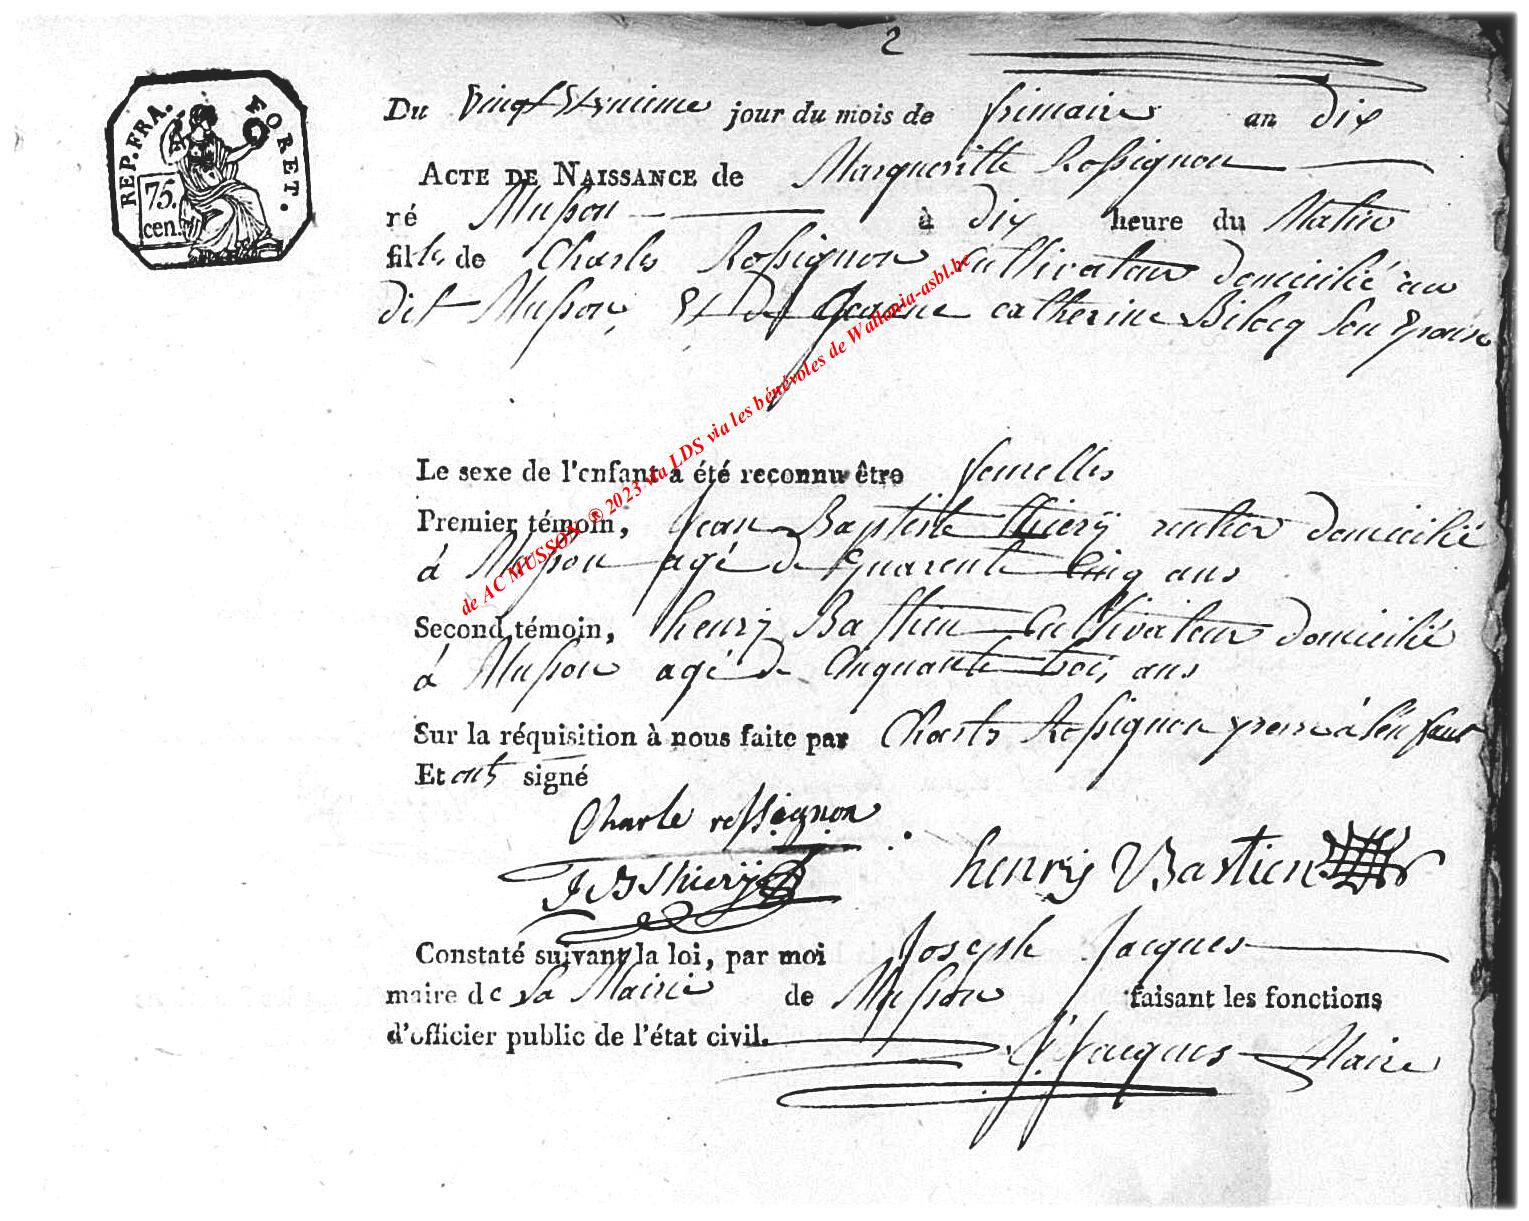 2
REP. FRA. FORET.
75.
cen.
Du Vingt Et unieme jour du mois de frimaire an dix
ACTE DE NAISSANCE de Margueritte Rossignon
né Musson à dix heure du Matin
fille de Charles Rossignon Cultivateur domicilié au
dit Musson, Et de Jeanne catherine Bilocq son Epouse
Le sexe de l'enfant a été reconnu être femelles
Premier témoin, Jean Baptiste thiery rentier domicilié
à Musson agé de quarente Cinq ans
Second témoin, henry Bastien Cultivateur domicilié
à Musson agé de Cinquante trois ans
Sur la réquisition à nous faite par Charles Rossignon perre à l'enfant
Et ont signé
Charle rossignon
J B thierÿ henrÿ Bastien
Constaté suivant la loi, par moi Joseph Jacques
maire de La Mairie de Musson faisant les fonctions
d'officier public de l'état civil.
J Jacques Maire
de AC MUSSON ® 2023 via LDS via les bénévoles de Wallonia-asbl.be